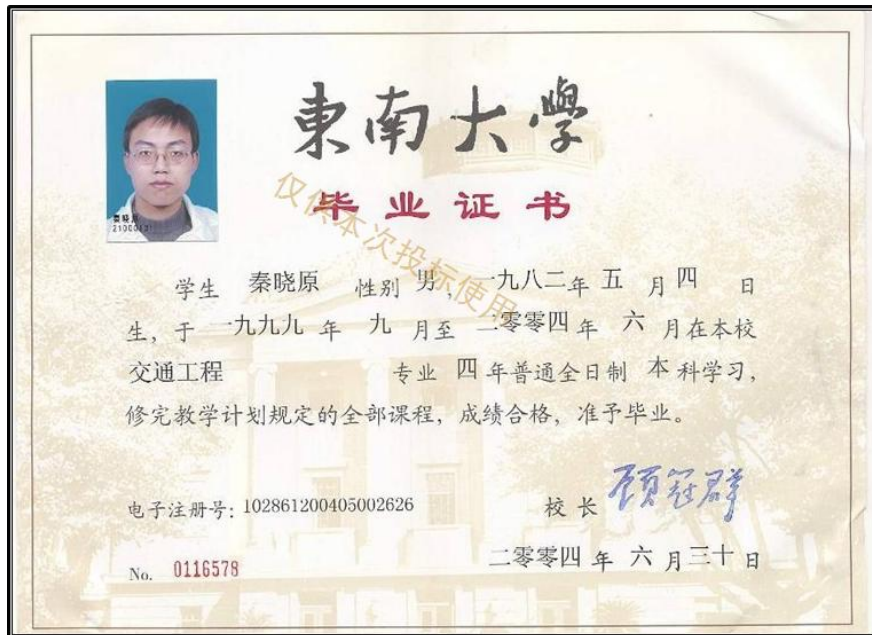 東南大學
毕业证书
仅供本次投标使用
秦晓原
学生 秦晓原 性别 男，一九八二年 五 月 四 日
生，于 一九九九 年 九 月至 二零零四 年 六 月在本校
交通工程 专业 四 年普通全日制 本 科学习，
修完教学计划规定的全部课程，成绩合格，准予毕业。
电子注册号：102861200405002626
校长 顾冠群
No. 0116578
二零零四 年 六 月三十 日